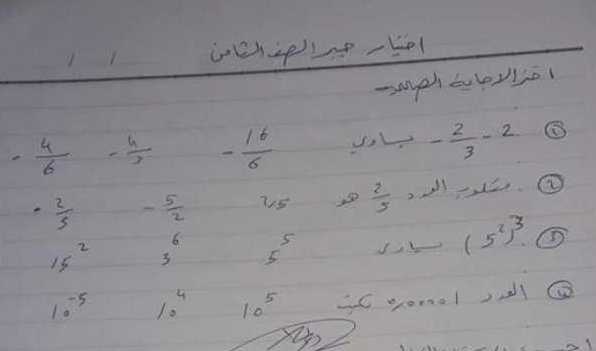 اختبار جبر الصف الثامن / /
اختر الاجابة الصحيحة
① 2 - 2/3 - يساوي - 16/6 - 4/3 - 4/6
② مقلوب العدد 2/5 هو 2,5 - 5/2 - 2/5
③ (5²)³ يساوي 5⁵ 5⁶ 15²
④ العدد 0,00001 يكتب 10⁵ 10⁴ 10⁻⁵